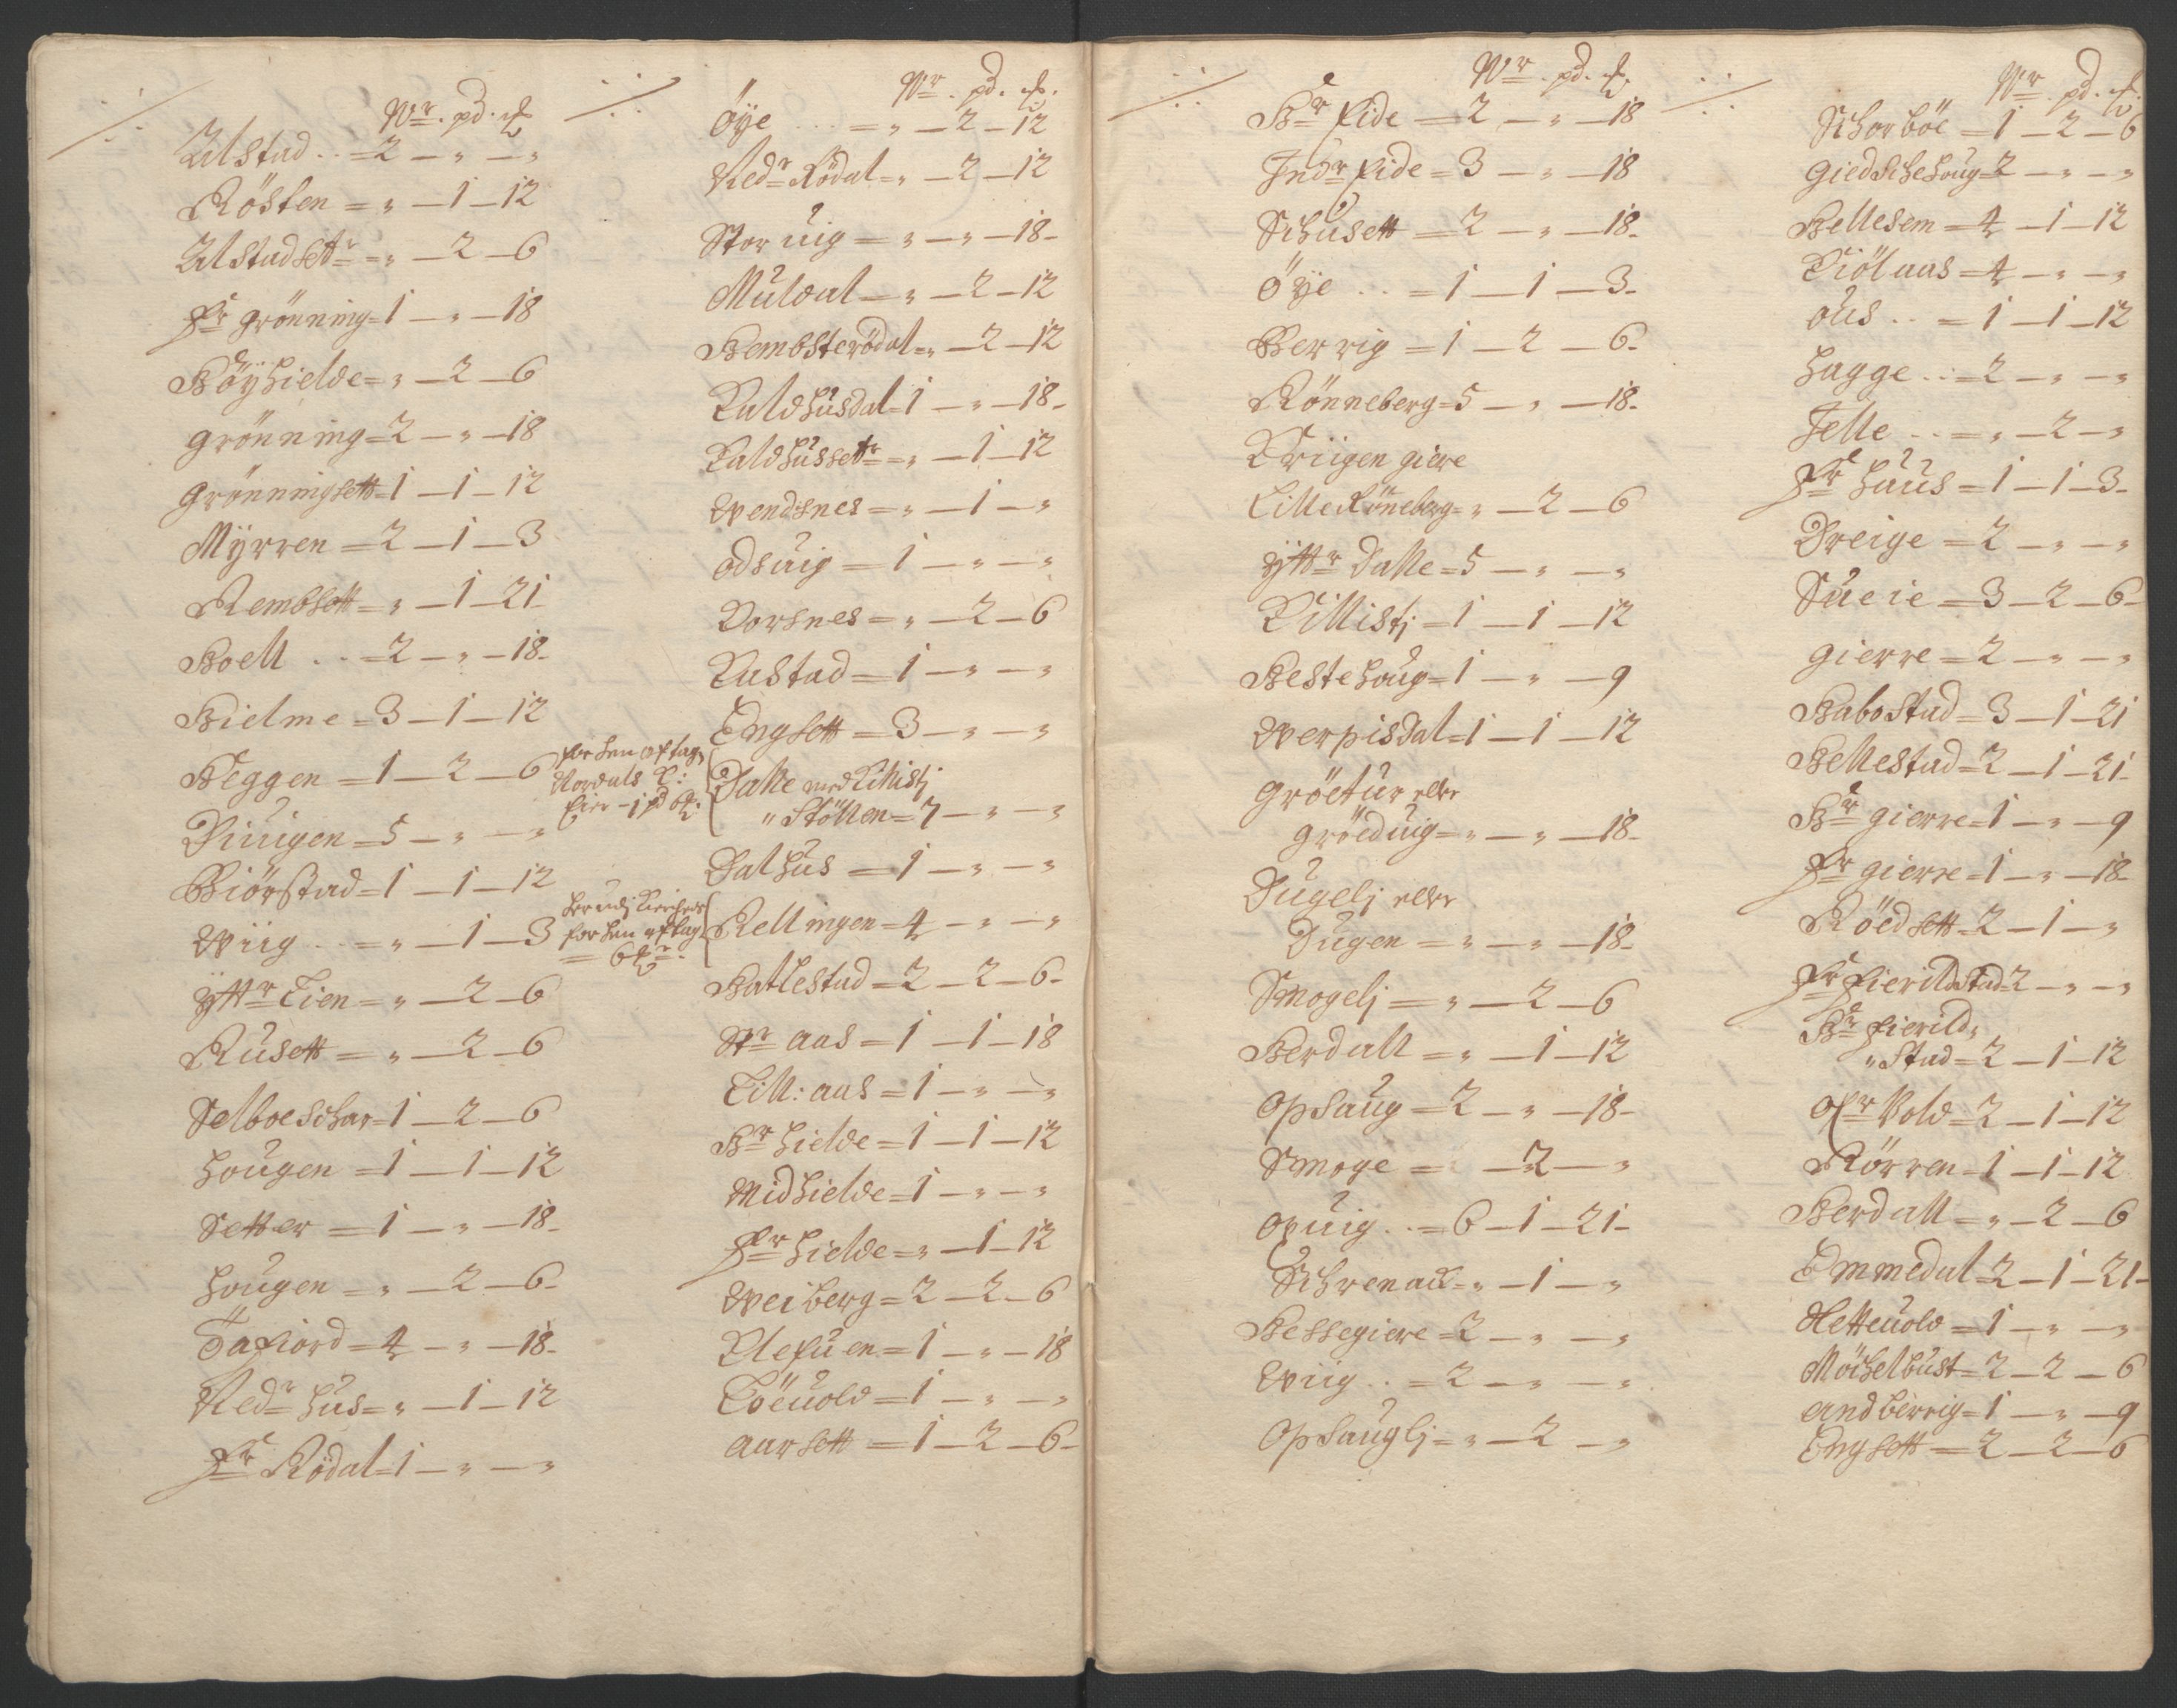 ·/·
Wr. pd. ℔
Alstad .. = 2 — „ — „
Rösten = „ — 1 — 12
Alstadsettr = „ — 2 — 6
Fr grönning = 1 — „ — 18
Böyhielde = „ — 2 — 6
grönning = 2 — „ — 18
grönningsett = 1 — 1 — 12
Mÿrren = 2 — 1 — 3
Rembsett = „ — 1 — 21
Boell .. = 2 — „ — 18
Bielme = 3 — 1 — 12
Beggen = 1 — 2 — 6
Diuigen = 5 — „ — „
Biörstad = 1 — 1 — 12
Wiig .. = „ — 1 — 3
ÿttr Lien = „ — 2 — 6
Rusett = „ — 2 — 6
Selboeschar = 1 — 2 — 6
hougen = 1 — 1 — 12
Setter = 1 — „ — 18
hougen = „ — 2 — 6
Tafiord = 4 — „ — 18
Nedr hus = „ — 1 — 12
Fr Rödal = 1 — „ — „
·/·
Wr. pd. ℔.
öÿe ... = „ — 2 — 12
Nedr Rödal = „ — 2 — 12
Storuig = „ — „ — 18
Muldal = „ — 2 — 12
Bembsterödal = „ — 2 — 12
Kaldhusdal = 1 — „ — 18
Kaldhussettr = „ — 1 — 12
Wendsnes = „ — 1 — „
odsuig = 1 — „ — „
Korsnes = „ — 2 — 6
Kastad = 1 — „ — „
Engsett = 3 — „ — „
for hen aflag
Nordals
Eier - 1 pd 6 ℔:
Dalle med
„ Stöllen = 7 — „ — „
Dalhus = 1 — „ — „
for hen aflag
= 6 ℔
Rellingen = 4 — „ — „
Batlestad = 2 — 2 — 6
Str aas = 1 — 1 — 18
Lill: aas = 1 — „ — „
Br hielde = 1 — 1 — 12
Midhielde = 1 — „ — „
Fr hielde = „ — 1 — 12
Weiberg = 2 — 2 — 6
Klefuen = 1 — „ — 18
Löeuold = 1 — „ — „
aarsett = 1 — 2 — 6
·/·
Wr. pd. ℔.
Br Lide = 2 — „ — 18
Indr Lide = 3 — „ — 18
Schusett = 2 — „ — 18
öÿe .. = 1 — 1 — 3
Berrig = 1 — 2 — 6
Rönneberg = 5 — „ — 18
Kriigen giere
Lille Röneberg = „ — 2 — 6
ÿttr Dalle = 5 — „ — „
Killistj = 1 — 1 — 12
Bestehoug = 1 — „ — 9
Werpisdal = 1 — 1 — 12
gröetur eller
gröeduig = „ — „ — 18
Dugelj eller
Dugen = „ — „ — 18
Smogelj = „ — 2 — 6
Berdall = „ — 1 — 12
Ophaug = 2 — „ — 18
Smoge = — 2 — „
Opuig .. = 6 — 1 — 21
Schrenack = „ — 1 — „
Bessegiere = 2 — „ — „
Wiig .. = 2 — „ — „
Ophauglj = „ — 2 — „
·/·
Wr. pd. ℔.
Schorböe = 1 — 2 — 6
giedschehoug = 2 — „ — „
Bellesem = 4 — 1 — 12
Kiölaas = 4 — „ — „
ous .. = 1 — 1 — 12
hagge .. = 2 — „ — „
Jelle .. = „ — 2 — „
Fr haus = 1 — 1 — 3
Dreige = 2 — „ — „
Sueie = 3 — 2 — 6
gierre = 2 — „ — „
Babostad = 3 — 1 — 21
Bellestad = 2 — 1 — 21
Br gierre = 1 — „ — 9
Fr gierre = 1 — „ — 18
Röedsett = 2 — 1 — „
Fr fierildstad = 2 — „ — „
Br fierild„
„ Stad = 2 — 1 — 12
Ofr Vold = 2 — 1 — 12
Rörren = 1 — 1 — 12
Berdall = „ — 2 — 6
Emmedal = 2 — 1 — 21
Hetteuold = 1 — „ — „
Möchelbust = 2 — 2 — 6
andberrig = 1 — „ — 9
Engsett = 2 — 2 — 6